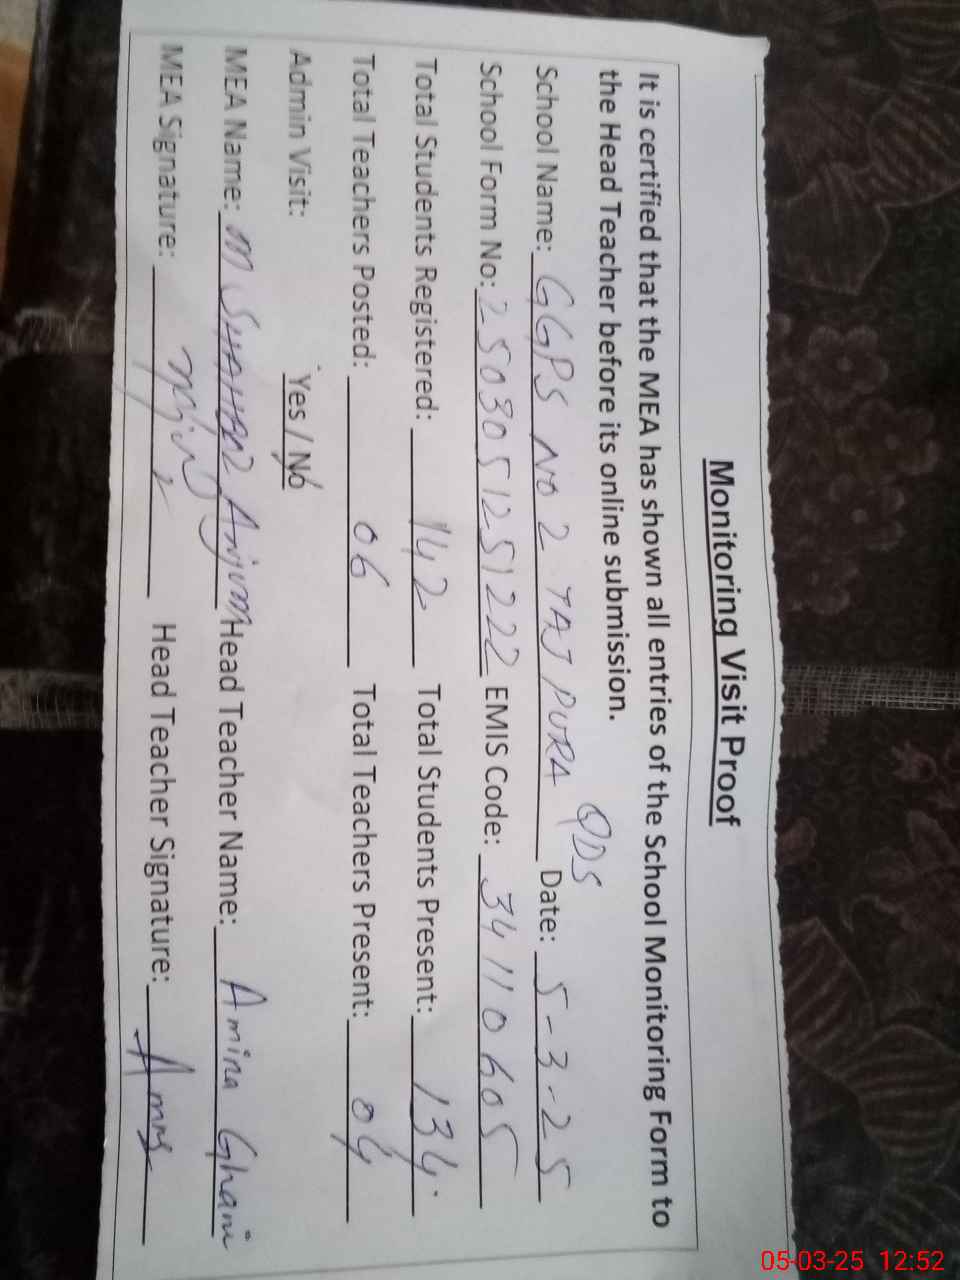 Monitoring Visit Proof
It is certified that the MEA has shown all entries of the School Monitoring Form to
the Head Teacher before its online submission.
QDS
School Name: GGPS No 2 TAJ PURA Date: 5-3-25
School Form No: 2503051251222 EMIS Code: 34110605
Total Students Registered: 142 Total Students Present: 134
Total Teachers Posted: 06 Total Teachers Present: 04
Admin Visit: Yes / No
MEA Name: M SHAHBAZ Anjum Head Teacher Name: Amina Ghani
MEA Signature: Head Teacher Signature:
05-03-25 12:52